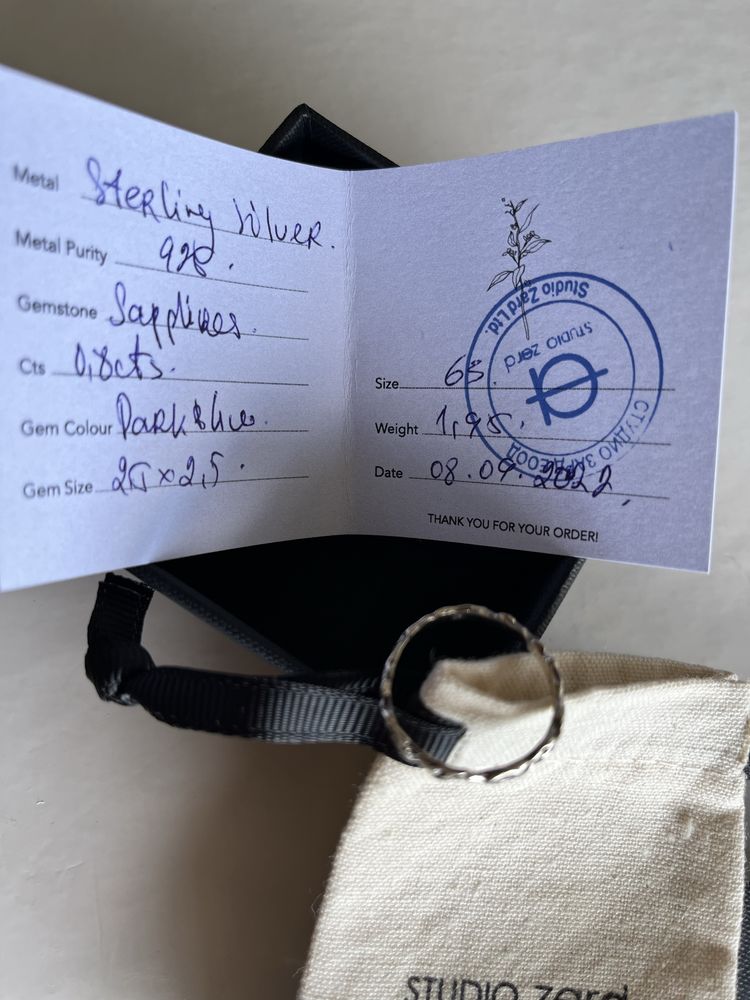 Metal Sterling Silver.
Metal Purity 925.
Gemstone Sapphires.
Cts 0,8cts.
Gem Colour Dark Blue.
Gem Size 2,5 x 2,5.
Studio Zard Ltd.
STUDIO zard
СТУДИО ЗАРД ЕООД
Size 65.
Weight 1,95.
Date 08.09.2022
THANK YOU FOR YOUR ORDER!
STUDIO zard